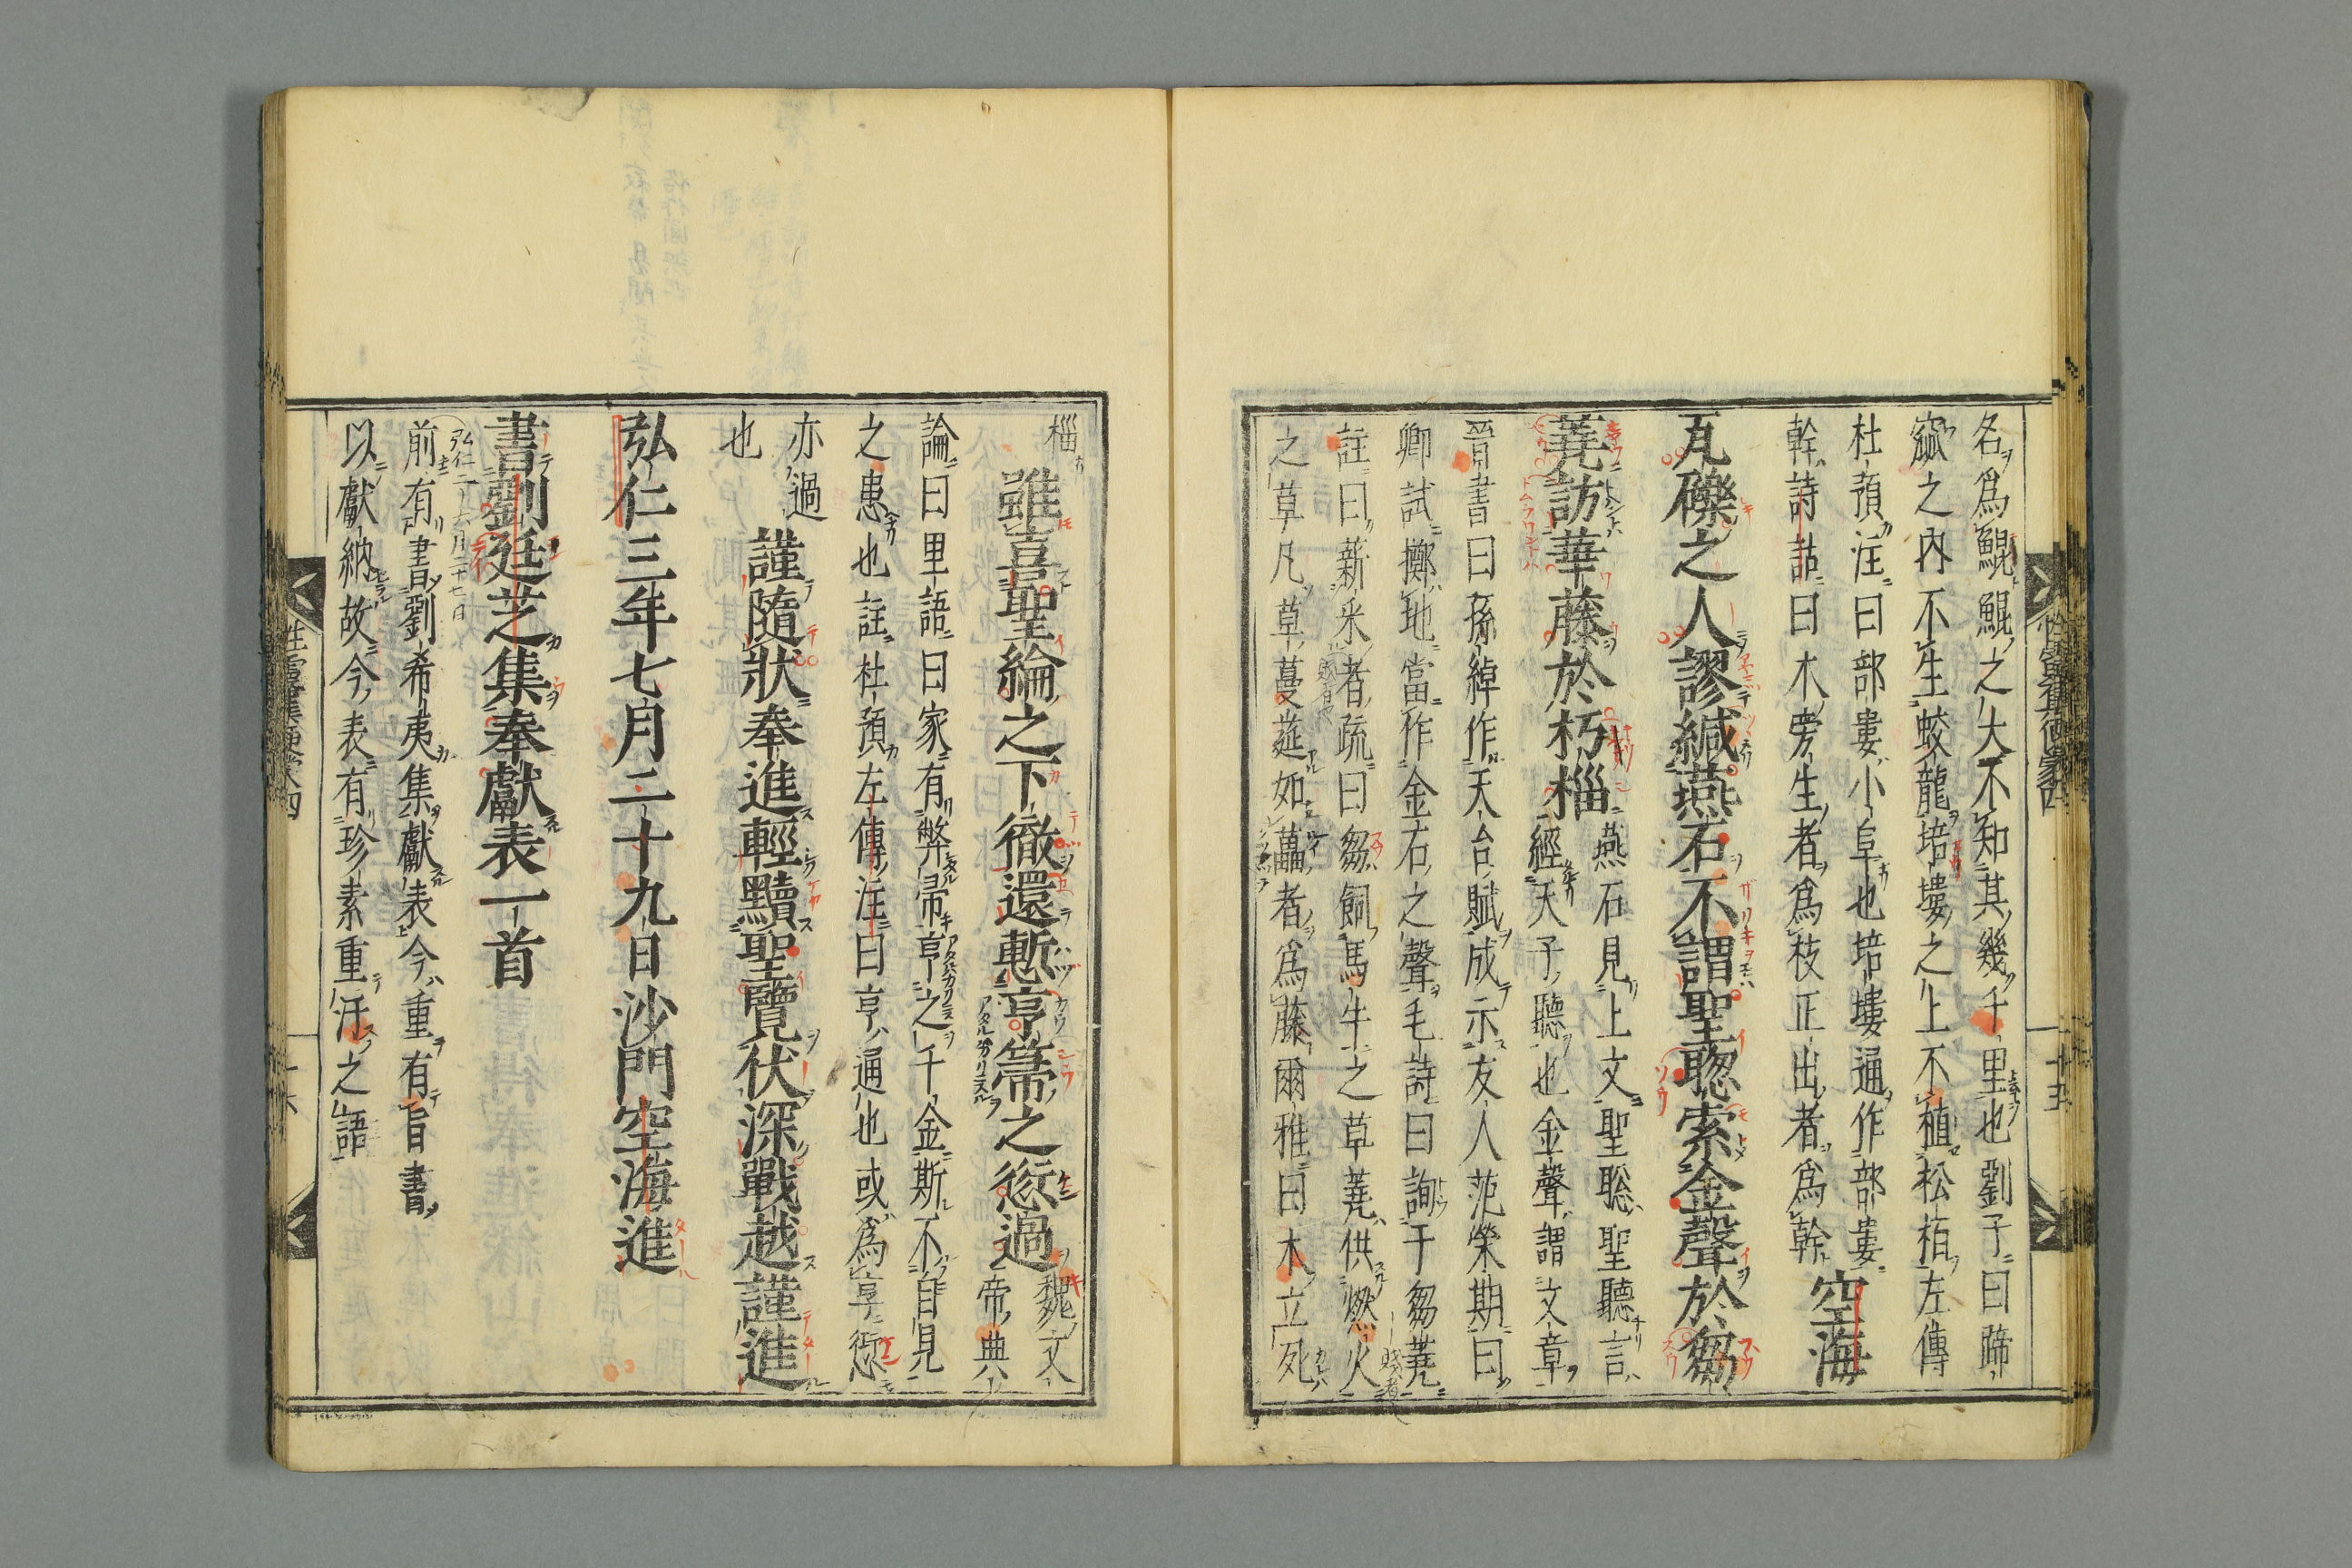 名爲鯤鯤之大不知其幾千里也劉子曰蹄
窪之內不生蛟龍培塿之上不植松栢左傳
杜預注曰部婁小阜也培塿通作部婁
幹詩詁曰木旁生者爲枝正出者爲幹
空海
瓦礫之人謬緘燕石不謂聖聦索金聲於芻
蕘訪華藤於朽椔
燕石見上文聖聡聖聽言
經天子聽也金聲謂文章
晉書曰孫綽作天台賦成示友人范榮期曰
卿試擲地當作金石之聲毛詩曰詢于芻蕘
註曰薪釆者疏曰芻飼馬牛之草蕘供燃火
之草凡草蔓莚如藟者爲藤爾雅曰木立死
椔
雖喜聖綸之下徹還慙亨箒之愆過
魏文
帝典
論曰里語曰家有弊帚亨之千金斯不自見
之患也註杜預左傳注曰亨通也或爲享愆
亦過
也
謹隨狀奉進輕黷聖覽伏深戰越謹進
弘仁三年七月二十九日沙門空海進
書劉廷芝集奉獻表一首
弘仁二六月二十七日
前有書劉希夷集獻表今重有旨書
以獻納故今表有珍素重汗之語